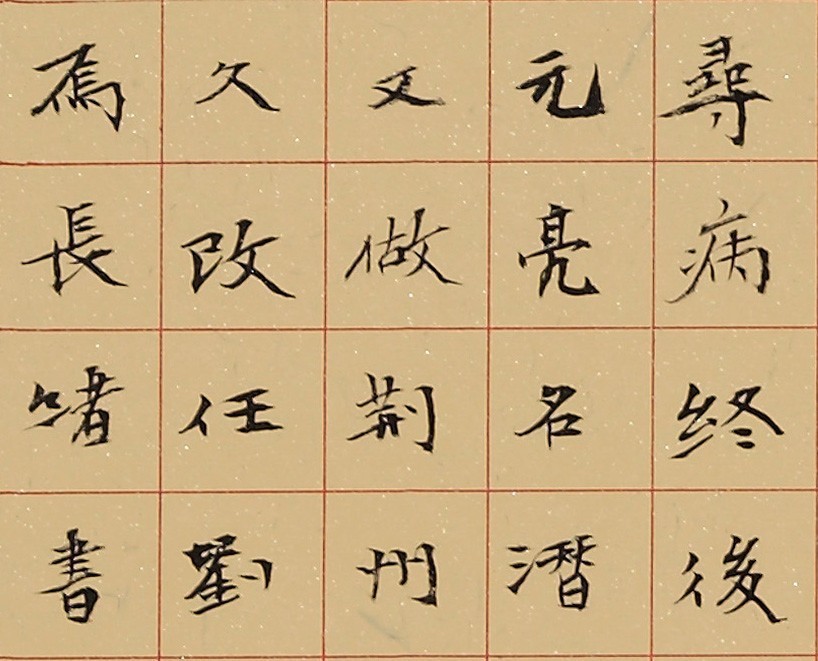 尋病終後
元亮名潛
又做荆州
久改任劉
焉長書